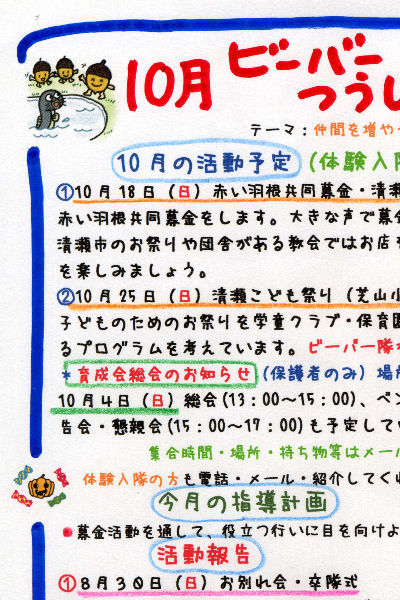 10月 ビーバー
つうし
テーマ：仲間を増や
10月の活動予定 (体験入隊
①10月18日（日）赤い羽根共同募金・清瀬
赤い羽根共同募金をします。大きな声で募金
清瀬市のお祭りや団舎がある教会ではお店
を楽しみましょう。
②10月25日（日）清瀬こども祭り（芝山小
子どものためのお祭りを学童クラブ・保育園
るプログラムを考えています。ビーバー隊
*育成会総会のお知らせ（保護者のみ）場所
10月4日（日）総会(13：00〜15：00)、ベン
告会・懇親会(15：00〜17：00)も予定してい
集合時間・場所・持ち物等はメール
体験入隊の方も電話・メール・紹介してくれ
今月の指導計画
●募金活動を通して、役立つ行いに目を向けよ
活動報告
①8月30日（日）お別れ会・卒隊式